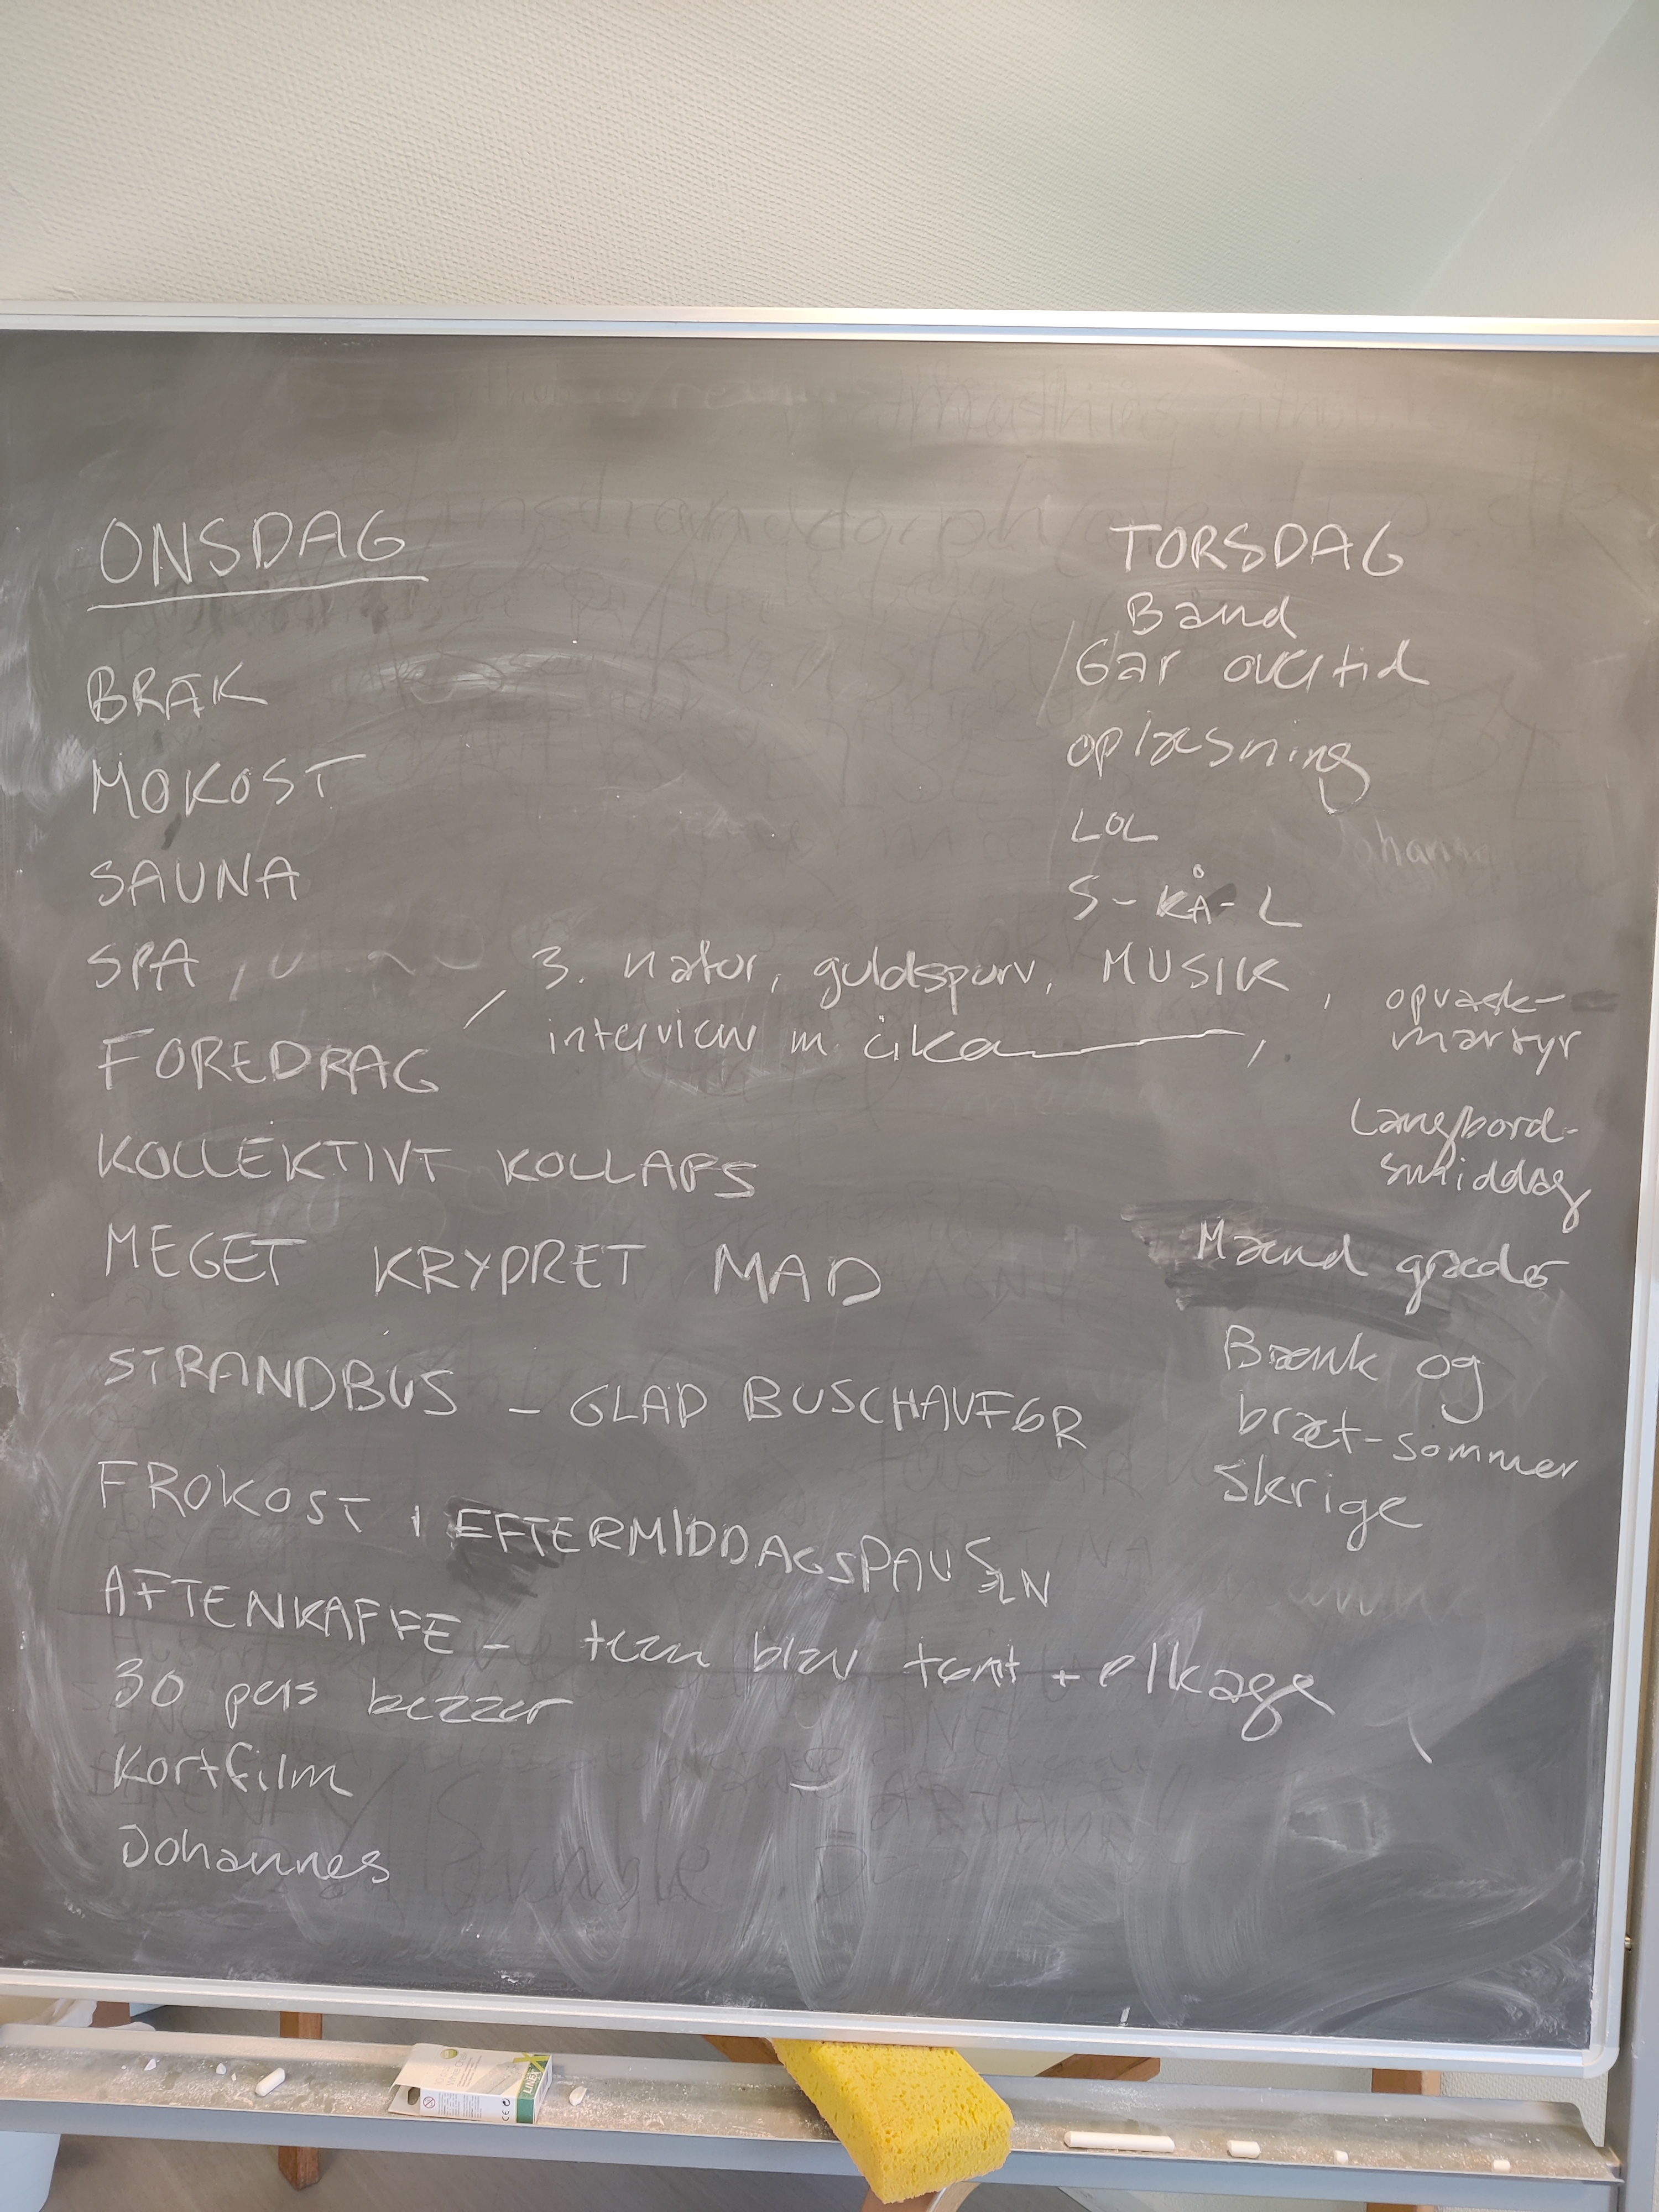 ONSDAG
BRAK
MOKOST
SAUNA
SPA,
FOREDRAG / 3. natur, guldspurv, MUSIK,
interview m cika,
KOLLEKTIVT KOLLAPS
MEGET KRYDRET MAD
STRANDBUS - GLAD BUSCHAUFØR
FROKOST I EFTERMIDDAGSPAUSEN
AFTENKAFFE - teen blev tømt + ølkage
30 pers bezzer
Kortfilm
Johannes
TORSDAG
Band
Går overtid
oplæsning
LOL
S-KÅ-L
opvask-
martyr
Langbord-
smiddag
Mænd græder
Bænk og
bræt-sommer
Skrige
LINEX